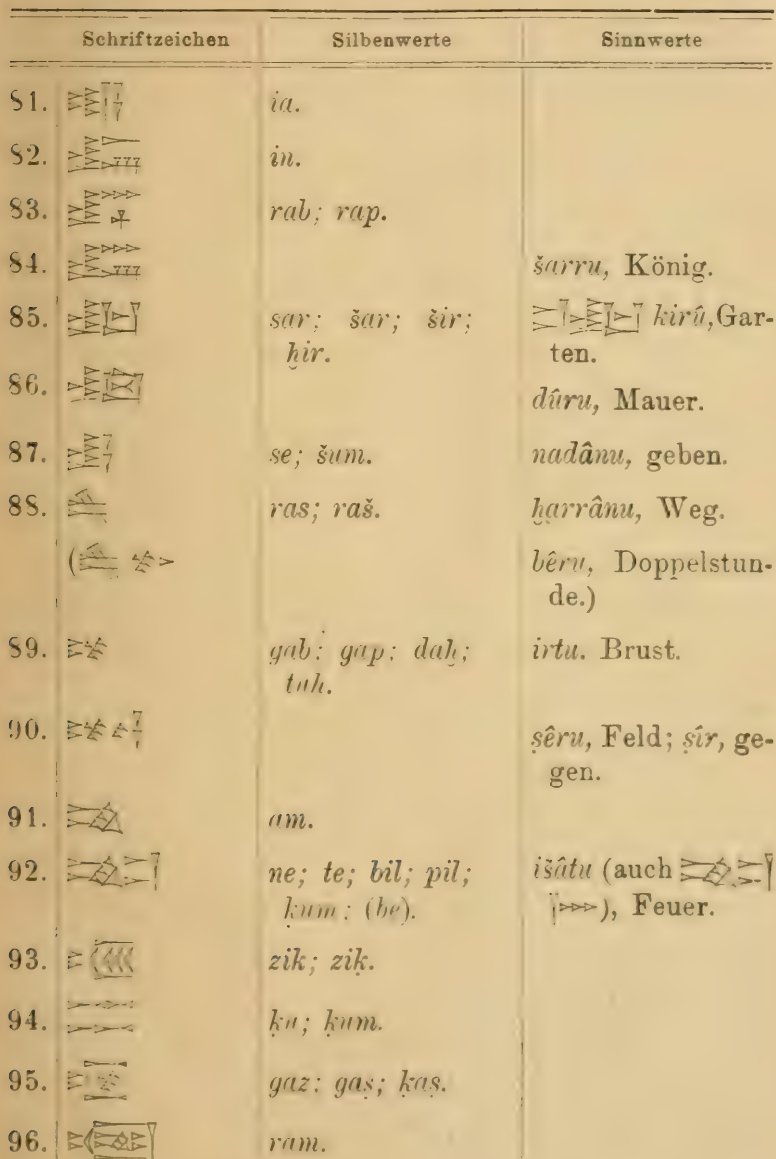 Schriftzeichen Silbenwerte Sinnwerte
81. ia.
82. in.
83. rab; rap.
84. šarru, König.
85. sar; šar; šir; kirû, Gar-
ḫir. ten.
86. dûru, Mauer.
87. se; šum. nadânu, geben.
88. ras; raš. ḫarrânu, Weg.
( bêru, Doppelstun-
de.)
89. gab; gap; daḫ; irtu. Brust.
taḫ.
90. ṣêru, Feld; ṣîr, ge-
gen.
91. am.
92. ne; te; bil; pil; išâtu (auch
kum; (be). ), Feuer.
93. zik; ziḳ.
94. ḳu; ḳum.
95. gaz; gaṣ; ḳaṣ.
96. ram.